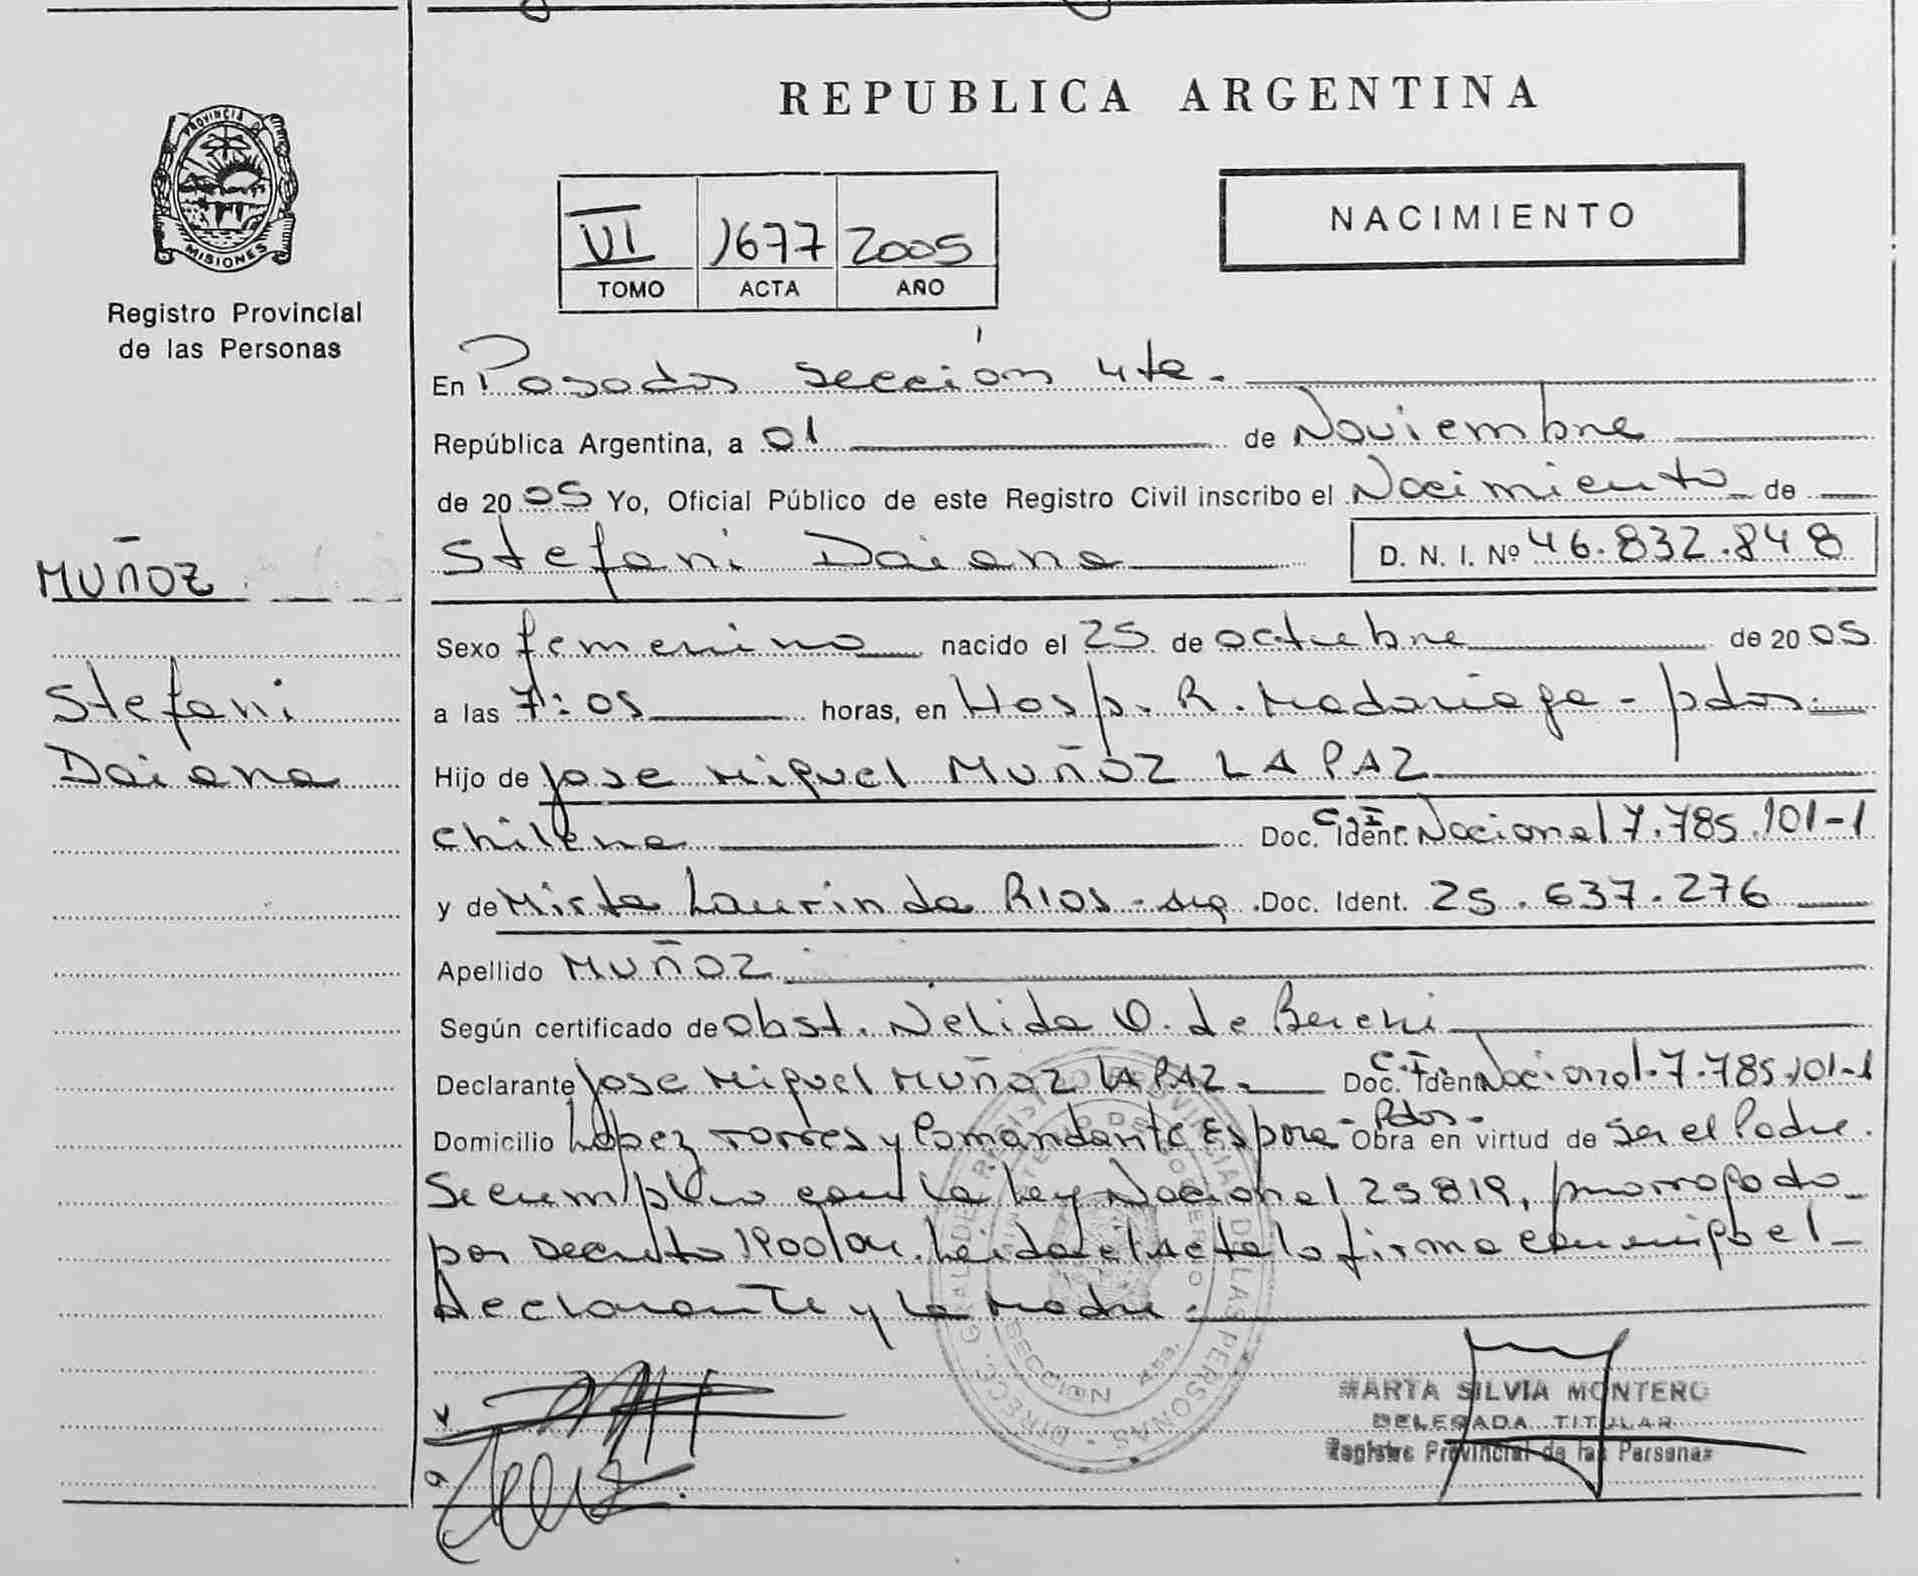 PROVINCIA DE
MISIONES
Registro Provincial
de las Personas
MUÑOZ
Stefani
Daiana
REPUBLICA ARGENTINA
VI 1677 2005
TOMO ACTA AÑO
NACIMIENTO
En Posadas sección 4ta.
República Argentina, a 01 de Noviembre
de 2005 Yo, Oficial Público de este Registro Civil inscribo el Nacimiento de
Stefani Daiana D. N. I. Nº 46.832.848
Sexo femenino nacido el 25 de octubre de 2005
a las 7:05 horas, en Hosp. R. Madariaga - pdas.
Hijo de Jose Miguel MUÑOZ LA PAZ
chilena Doc. Ident. C.I. Nacional 7.785.101-1
y de Mirta Laurinda RIOS - arg. Doc. Ident. 25.637.276
Apellido MUÑOZ
Según certificado de obst. Nelida O. de
Declarante Jose Miguel MUÑOZ LA PAZ. Doc. Ident. C.I. Nacional 7.785.101-1
Domicilio López Torres y Comandante Espora - Pdas - Obra en virtud de ser el Padre.
Se cumplio con la Ley Nacional 25819, prorrogada
por Decreto 1900/04. Leida el Acta la firma conmigo el
declarante y la madre.
DIRECC. GRAL. DE REGISTRO PROVINCIAL DE LAS PERSONAS
MINISTERIO DE GOBIERNO
SECCION 4ta.
MARTA SILVIA MONTERO
DELEGADA TITULAR
Registro Provincial de las Personas